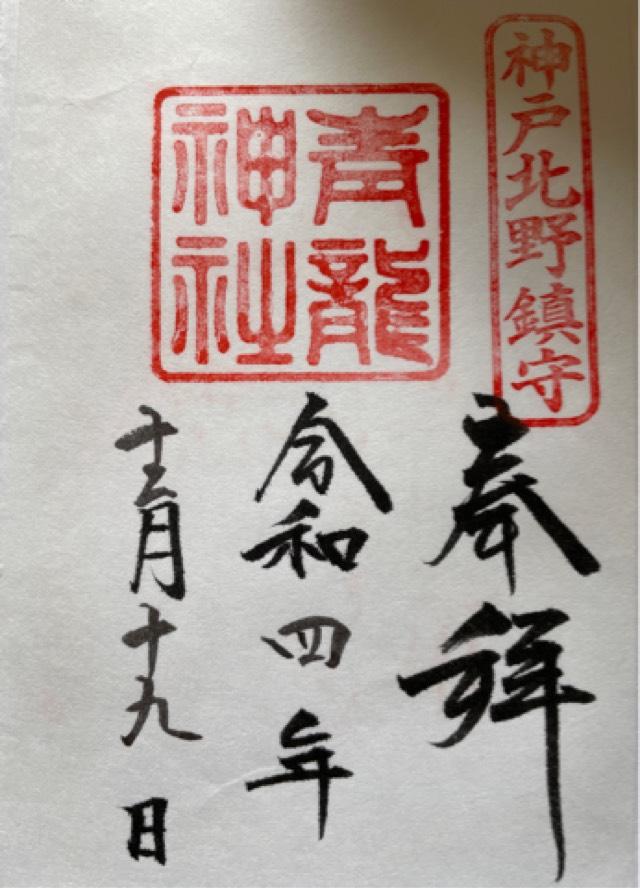 神戸北野鎮守
奉拝
青龍
神社
令和四年
十二月十九日